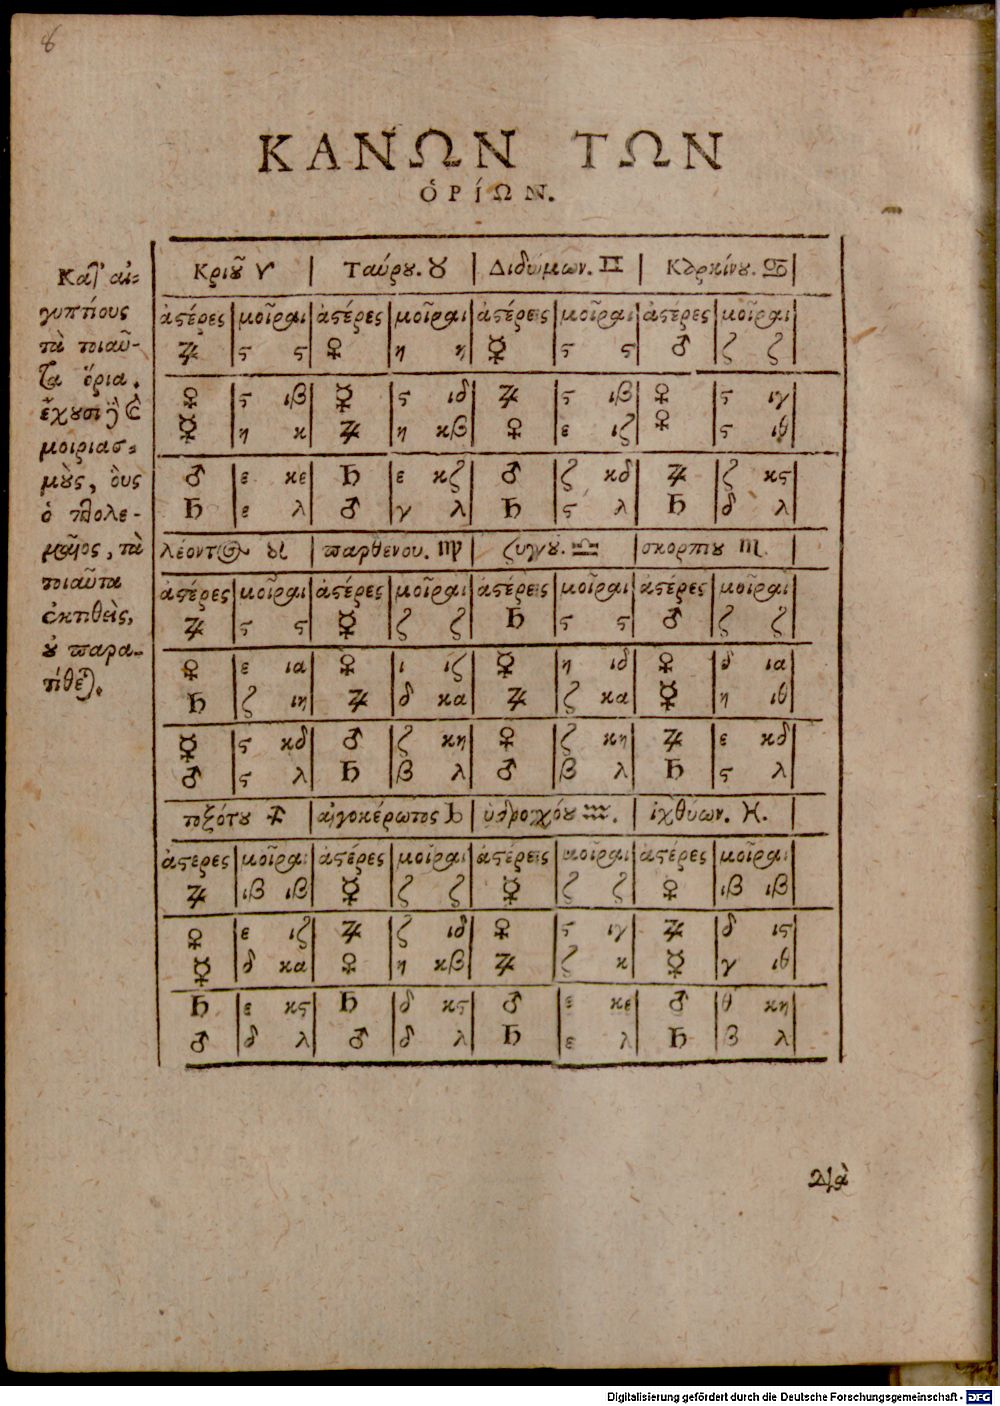 8
ΚΑΝΩΝ ΤΩΝ
ὉΡΊΩΝ.
Κατ' αἰ-
γυπτίους
τὰ τοιαῦ-
τα ὅρια.
ἔχουσι ϗ
μοιριασ-
μοὺς, οὓς
ὁ πτολε-
μαῖος, τὰ
τοιαῦτα
ἐκτιθεὶς,
οὐ παρα-
τίθεται.
Κριοῦ ♈ Ταύρου. ♉ Διδύμων. ♊ Καρκίνου. ♋
ἀστέρες μοῖραι ἀστέρες μοῖραι ἀστέρεις μοῖραι ἀστέρες μοῖραι
♃ ϛ ϛ ♀ η η ☿ ϛ ϛ ♂ ζ ζ
♀ ϛ ιβ ☿ ϛ ιδ ♃ ϛ ιβ ♀ ϛ ιγ
☿ η κ ♃ η κβ ♀ ε ιζ ♀ ϛ ιθ
♂ ε κε ♄ ε κζ ♂ ζ κδ ♃ ζ κϛ
♄ ε λ ♂ γ λ ♄ ϛ λ ♄ δ λ
λέοντος ♌ παρθένου. ♍ ζυγοῦ. ♎ σκορπίου ♏.
ἀστέρες μοῖραι ἀστέρες μοῖραι ἀστέρεις μοῖραι ἀστέρες μοῖραι
♃ ϛ ϛ ☿ ζ ζ ♄ ϛ ϛ ♂ ζ ζ
♀ ε ια ♀ ι ιζ ☿ η ιδ ♀ δ ια
♄ ζ ιη ♃ δ κα ♃ ζ κα ☿ η ιθ
☿ ϛ κδ ♂ ζ κη ♀ ζ κη ♃ ε κδ
♂ ϛ λ ♄ β λ ♂ β λ ♄ ϛ λ
τοξότου ♐ αἰγοκέρωτος ♑ ὑδροχόου ♒. ἰχθύων. ♓.
ἀστερες μοῖραι ἀστέρες μοῖραι ἀστέρεις μοῖραι ἀστέρες μοῖραι
♃ ιβ ιβ ☿ ζ ζ ☿ ζ ζ ♀ ιβ ιβ
♀ ε ιζ ♃ ζ ιδ ♀ ϛ ιγ ♃ δ ιϛ
☿ δ κα ♀ η κβ ♃ ζ κ ☿ γ ιθ
♄ ε κϛ ♄ δ κϛ ♂ ε κε ♂ θ κη
♂ δ λ ♂ δ λ ♄ ε λ ♄ β λ
Διὰ
Digitalisierung gefördert durch die Deutsche Forschungsgemeinschaft - DFG